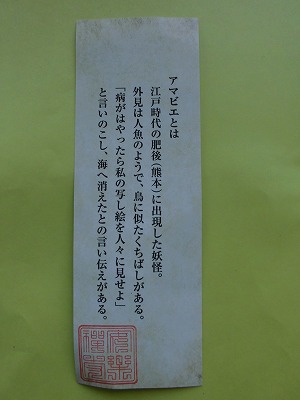 アマビエとは
江戸時代の肥後(熊本)に出現した妖怪。
外見は人魚のようで、鳥に似たくちばしがある。
「病がはやったら私の写し絵を人々に見せよ」
と言いのこし、海へ消えたとの言い伝えがある。